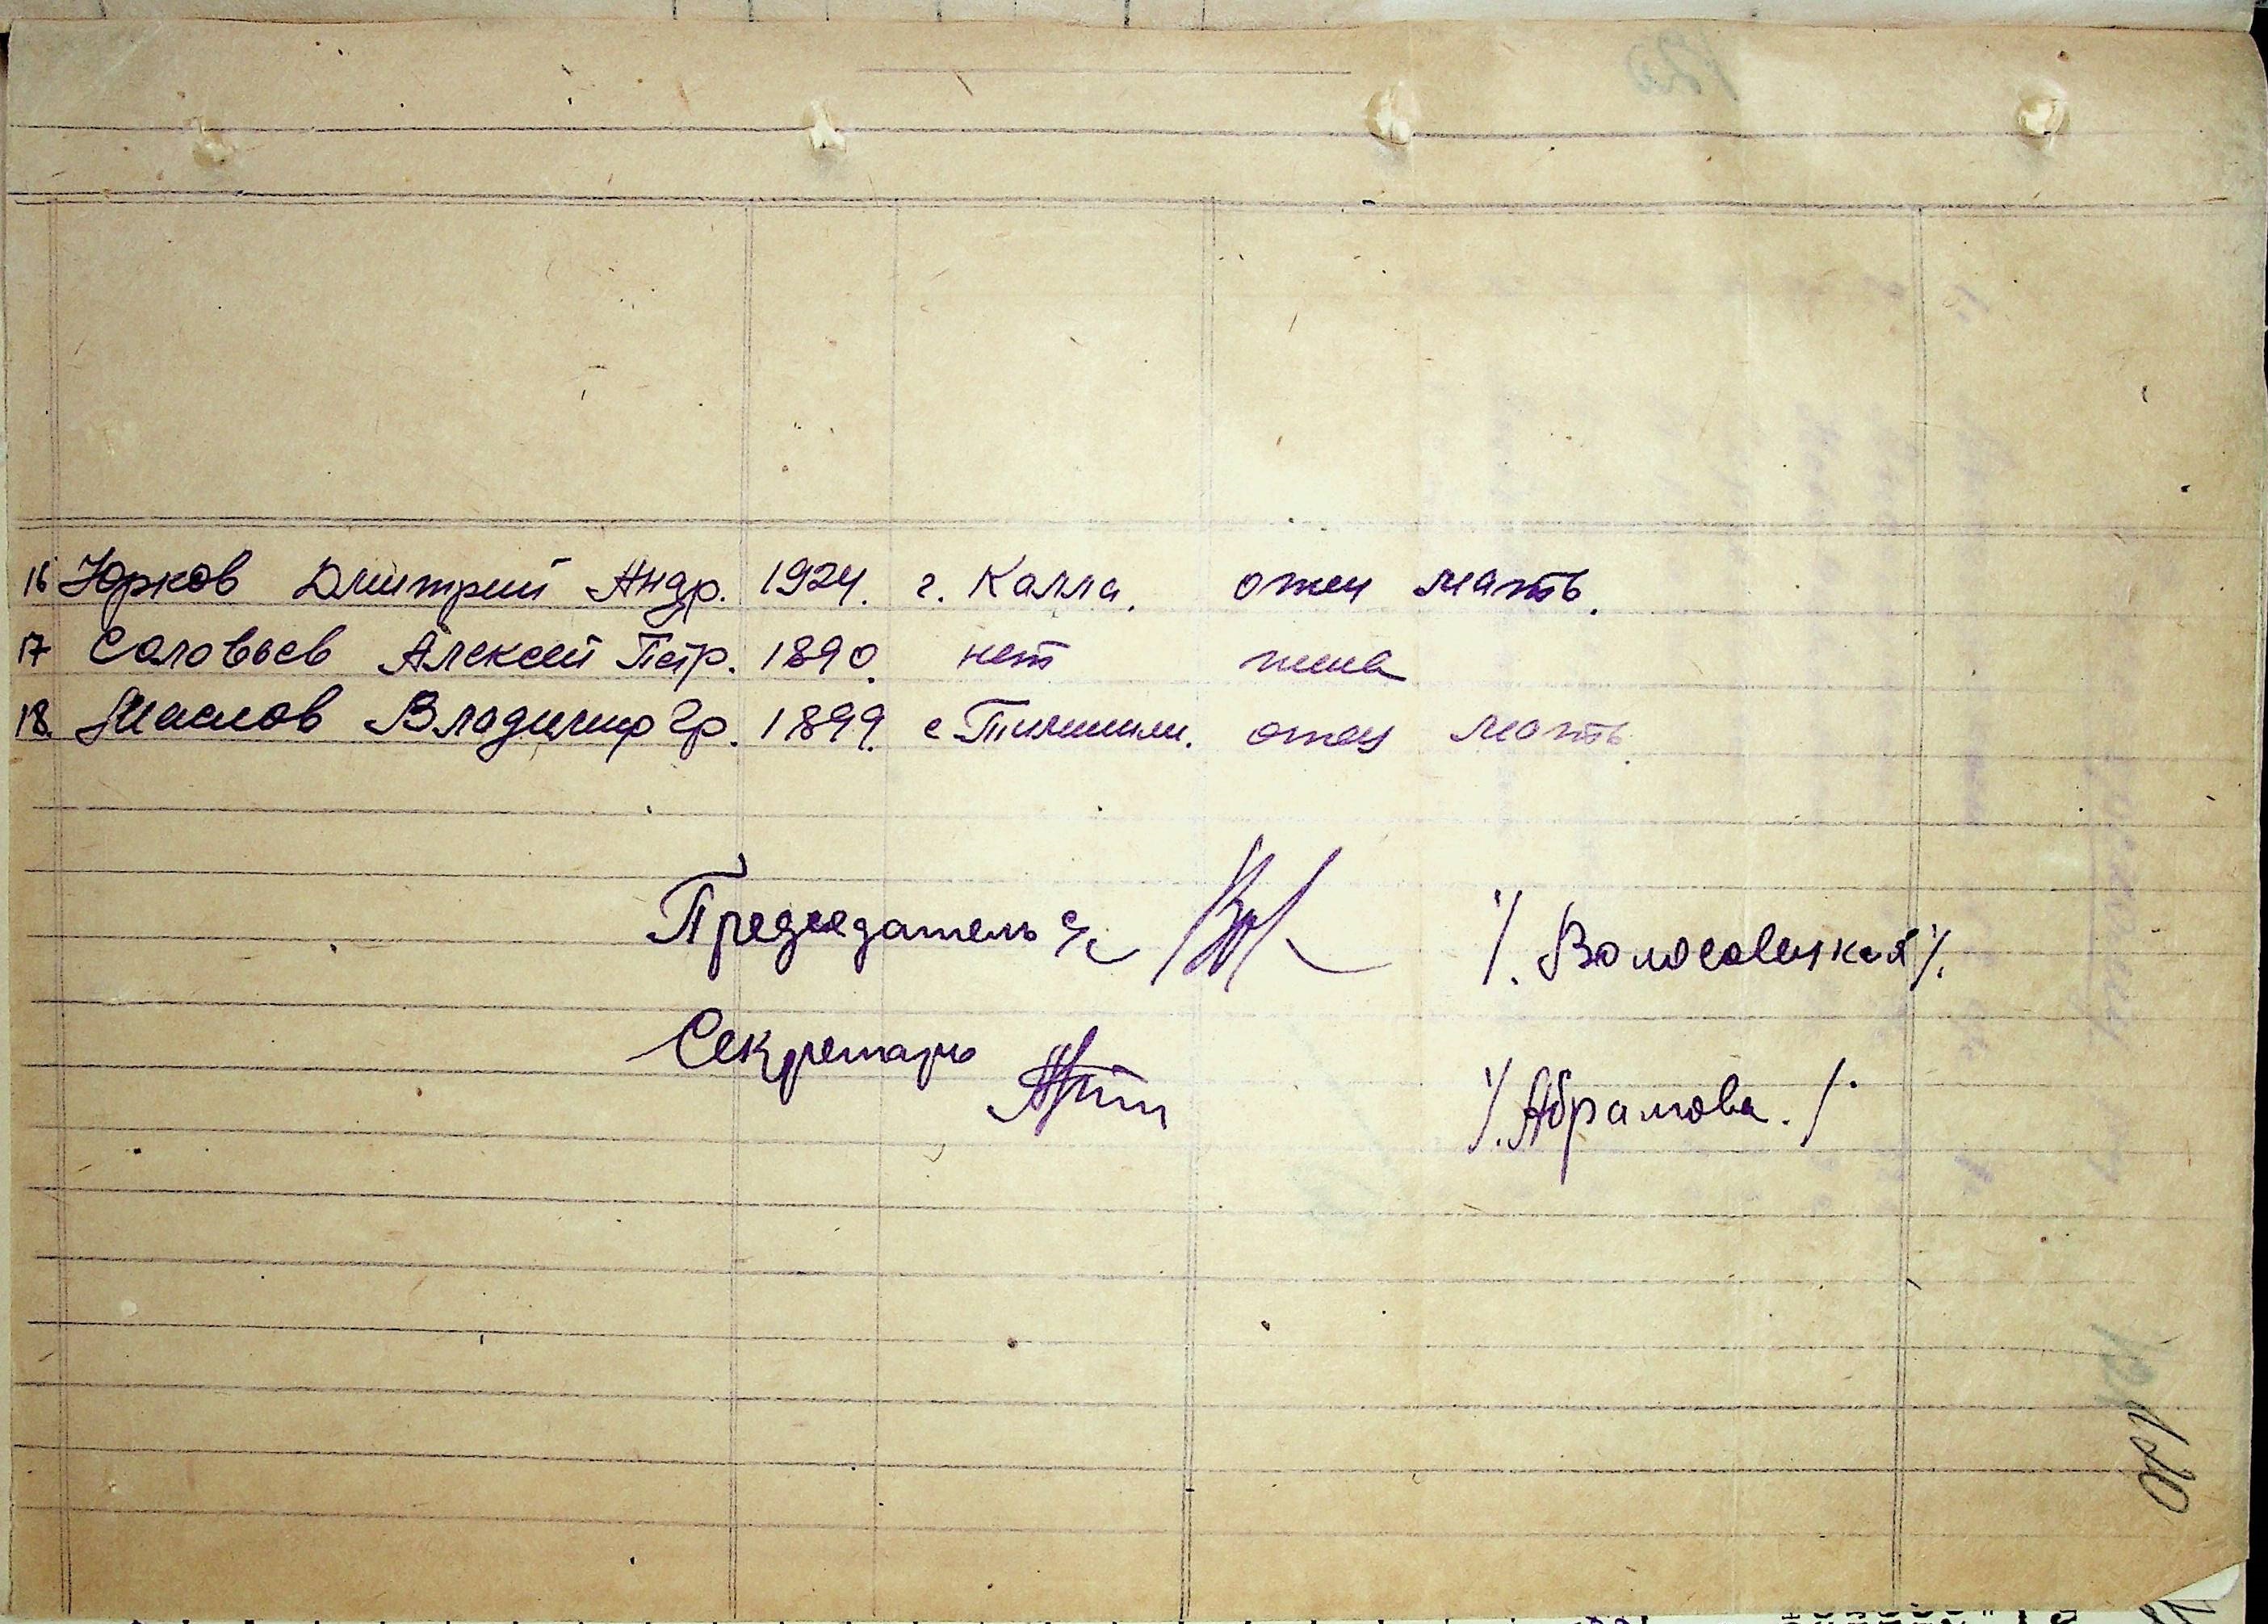 16 Юрков Дмитрий Андр. 1924. г. Калла. отец мать.
17 Соловьев Алексей Петр. 1890. нет жена
18. Маслов Владимир Гр. 1899. с. отец мать.
Председатель с/с /. Волосовецкая /.
Секретарь /. Абрамова. /
120